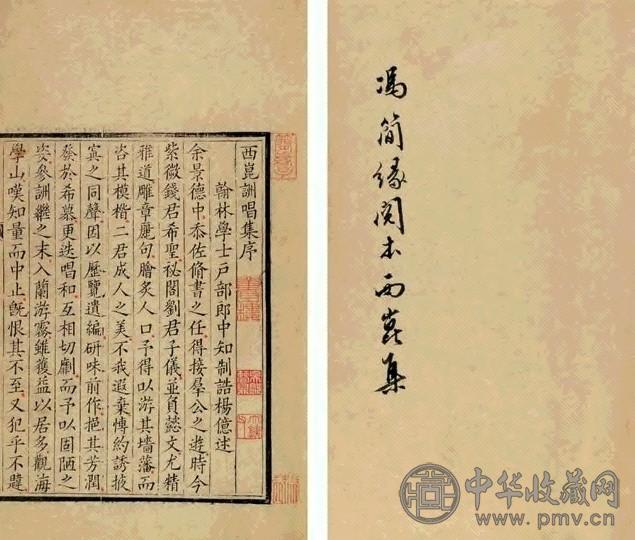 馮簡缘阅本西崑集
西崑訓唱集序
翰林學士戸部郎中知制誥楊億述
余景德中忝佐脩書之任得接羣公之遊時今
紫微錢君希聖祕閣劉君子儀並負懿文尤精
雅道雕章麗句膾炙人口予得以游其墻藩而
咨其模楷二君成人之美不我遐棄博約誘掖
寘之同聲因以歷覽遺編研味前作挹其芳潤
發於希慕更迭唱和互相切劘而予以固陋之
姿參訓繼之末入蘭游霧雖獲益以居多觀海
學山嘆知量而中止旣恨其不至又犯乎不韙
中华收藏网
www.pmv.cn